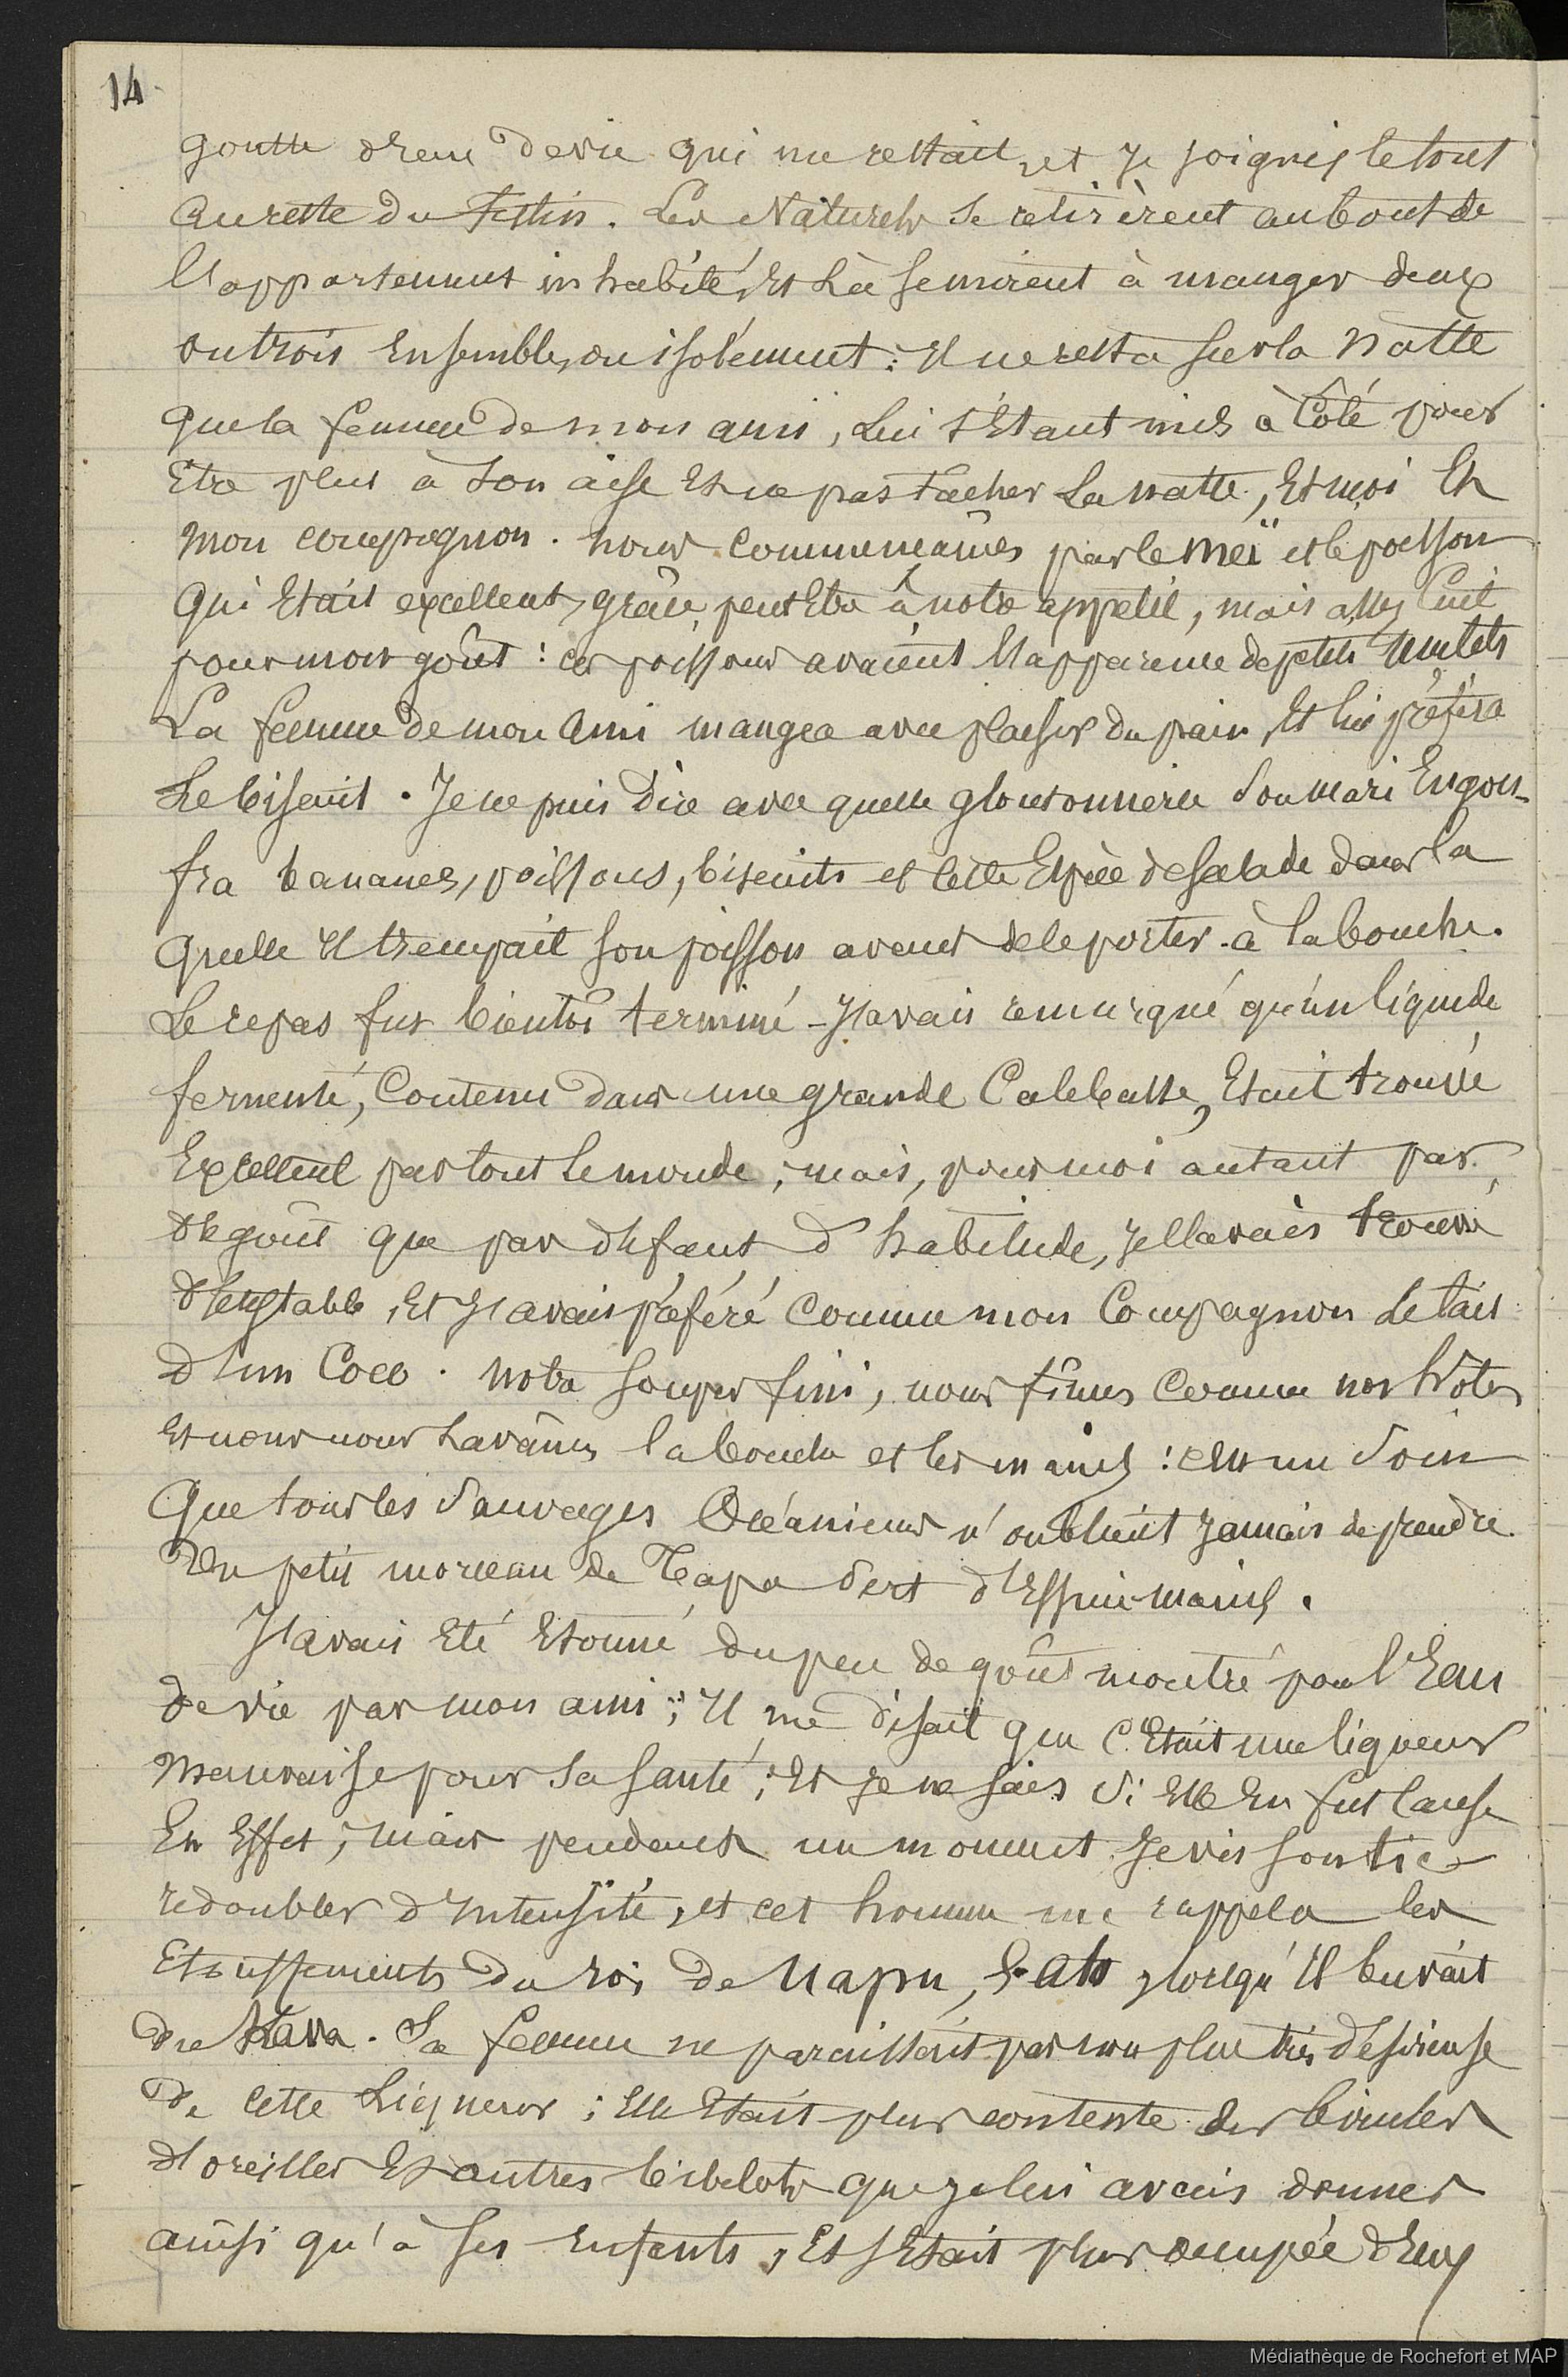 14
goutte d'eau de vie qui me restait, et je joignis le tout
au reste du festin. Les Naturels se retirèrent au bout de
l'appartement inhabité, et là se mirent à manger deux
ou trois ensemble, ou isolément : Il ne resta sur la natte
que la femme de mon ami, lui s'étant mis à côté pour
être plus à son aise et ne pas tacher la natte, et moi et
mon compagnon. Nous commençâmes par le meï et le poisson
qui était excellent, grâce peut être à notre appétit, mais assez cuit
pour mon goût : ces poissons avaient l'apparence de petits mulets
La femme de mon ami mangea avec plaisir du pain, et lui préféra
le biscuit. Je ne puis dire avec quelle gloutonnerie son mari engou-
fra bananes, poissons, biscuits et cette espèce de salade dans la
quelle il trempait son poisson avant de le porter à la bouche.
Le repas fut bientôt terminé - J'avais remarqué qu'un liquide
fermenté, contenu dans une grande calebasse, était trouvé
excellent par tout le monde ; mais, pour moi autant par
dégoût que par défaut d'habitude, je l'avais trouvé
détestable, et j'avais préféré comme mon compagnon le lait
d'un coco. Notre souper fini, nous fîmes comme nos hôtes
et nous nous lavâmes la bouche et les mains : c'est un soin
que tous les sauvages Océaniens n'oublient jamais de prendre.
Un petit morceau de Tapa sert d'essuie-mains.
J'avais été étonné du peu de goût montré pour l'eau
de vie par mon ami ; Il me disait que c'était une liqueur
mauvaise pour sa santé ; et je ne sais si elle en fut cause
en effet ; mais pendant un moment je vis son tic
redoubler d'intensité, et cet homme me rappela les
étouffements du roi de Uapu, lorsqu'il buvait
du Kava. Sa femme ne paraissait pas non plus très désireuse
de cette liqueur ; elle était plus contente des boucles
d'oreilles et autres bibelots que je lui avais donner
ainsi qu'à ses enfants, et s'était plus occupée d'eux
Médiathèque de Rochefort et MAP